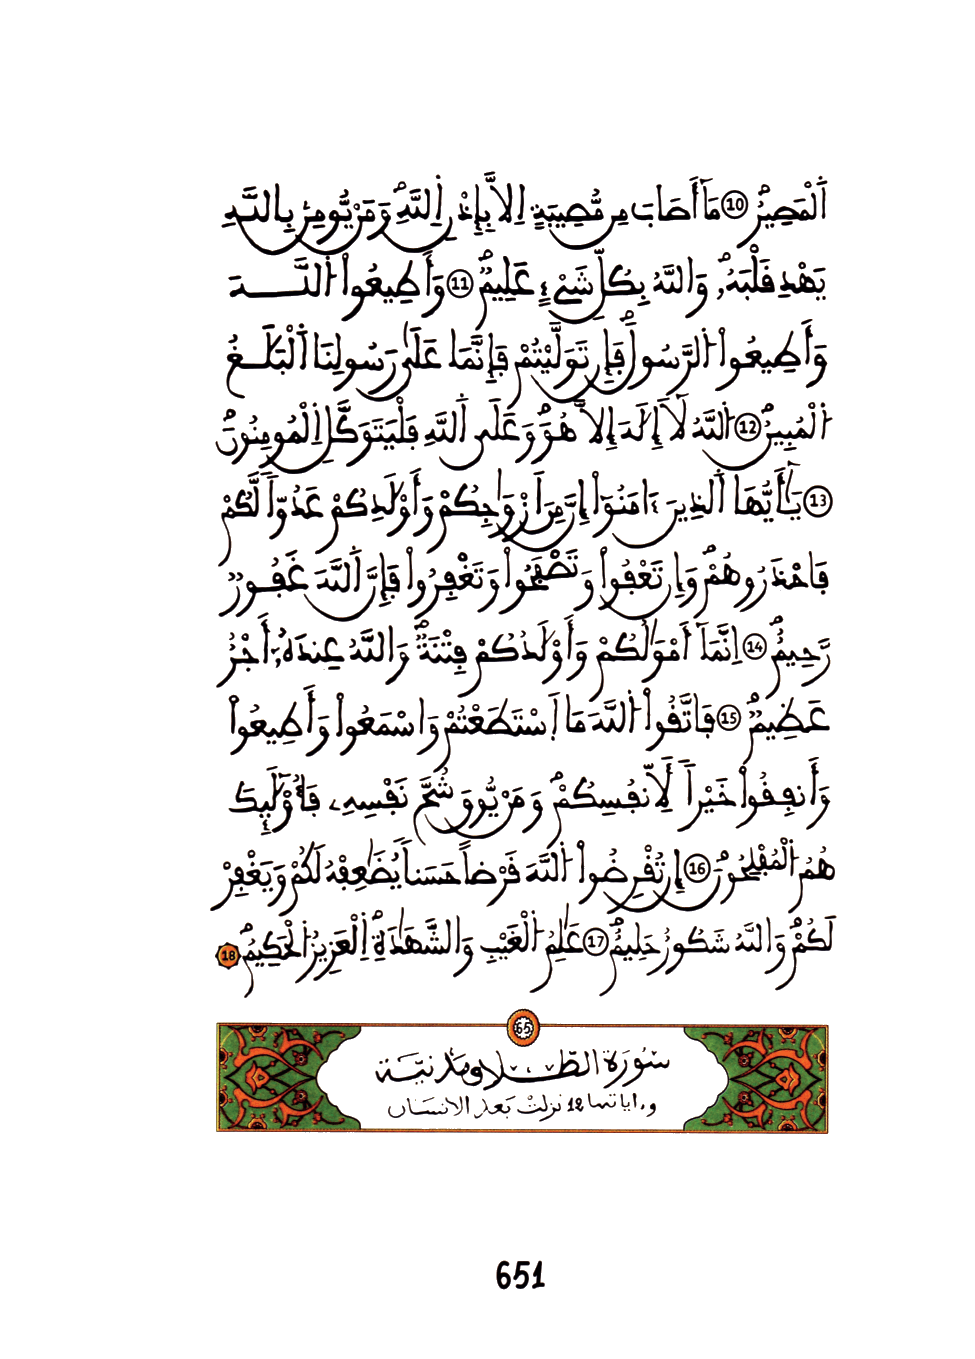 اَ۬لْمَصِيرُۖ 10 مَآ أَصَابَ مِن مُّصِيبَةٍ اِلَّا بِإِذْنِ اِ۬للَّهِۖ وَمَنْ يُّومِنۢ بِاللَّهِ
يَهْدِ قَلْبَهُۥۖ وَاللَّهُ بِكُلِّ شَےْءٍ عَلِيمٞۖ 11 وَأَطِيعُواْ اُ۬للَّهَ
وَأَطِيعُواْ اُ۬لرَّسُولَۖ فَإِن تَوَلَّيْتُمْ فَإِنَّمَا عَلَىٰ رَسُولِنَا اَ۬لْبَلَٰغُ
اُ۬لْمُبِينُۖ 12 اُ۬للَّهُ لَآ إِلَٰهَ إِلَّا هُوَۖ وَعَلَى اَ۬للَّهِ فَلْيَتَوَكَّلِ اِ۬لْمُومِنُونَۖ
13 يَٰٓأَيُّهَا اَ۬لذِينَ ءَامَنُوٓاْ إِنَّ مِنَ اَزْوَٰجِكُمْ وَأَوْلَٰدِكُمْ عَدُوّاٗ لَّكُمْ
فَاحْذَرُوهُمْۖ وَإِن تَعْفُواْ وَتَصْفَحُواْ وَتَغْفِرُواْ فَإِنَّ اَ۬للَّهَ غَفُورٞ
رَّحِيمٌۖ 14 اِنَّمَآ أَمْوَٰلُكُمْ وَأَوْلَٰدُكُمْ فِتْنَةٞۖ وَاللَّهُ عِندَهُۥٓ أَجْرٌ
عَظِيمٞۖ 15 فَاتَّقُواْ اُ۬للَّهَ مَا اَ۪سْتَطَعْتُمْ وَاسْمَعُواْ وَأَطِيعُواْ
وَأَنفِقُواْ خَيْراٗ لِّأَنفُسِكُمْۖ وَمَنْ يُّوقَ شُحَّ نَفْسِهِۦ فَأُوْلَٰٓئِكَ
هُمُ اُ۬لْمُفْلِحُونَۖ 16 إِن تُقْرِضُواْ اُ۬للَّهَ قَرْضاً حَسَناٗ يُضَٰعِفْهُ لَكُمْ وَيَغْفِرْ
لَكُمْۖ وَاللَّهُ شَكُورٌ حَلِيمٌۖ 17 عَٰلِمُ اُ۬لْغَيْبِ وَالشَّهَٰدَةِۖ اِ۬لْعَزِيزُ اُ۬لْحَكِيمُۖ 18
65
سُورَةُ الطَّلَاقِ مَدَنِيَّة
وءاياتها 12 نزلت بعد الانسان
651